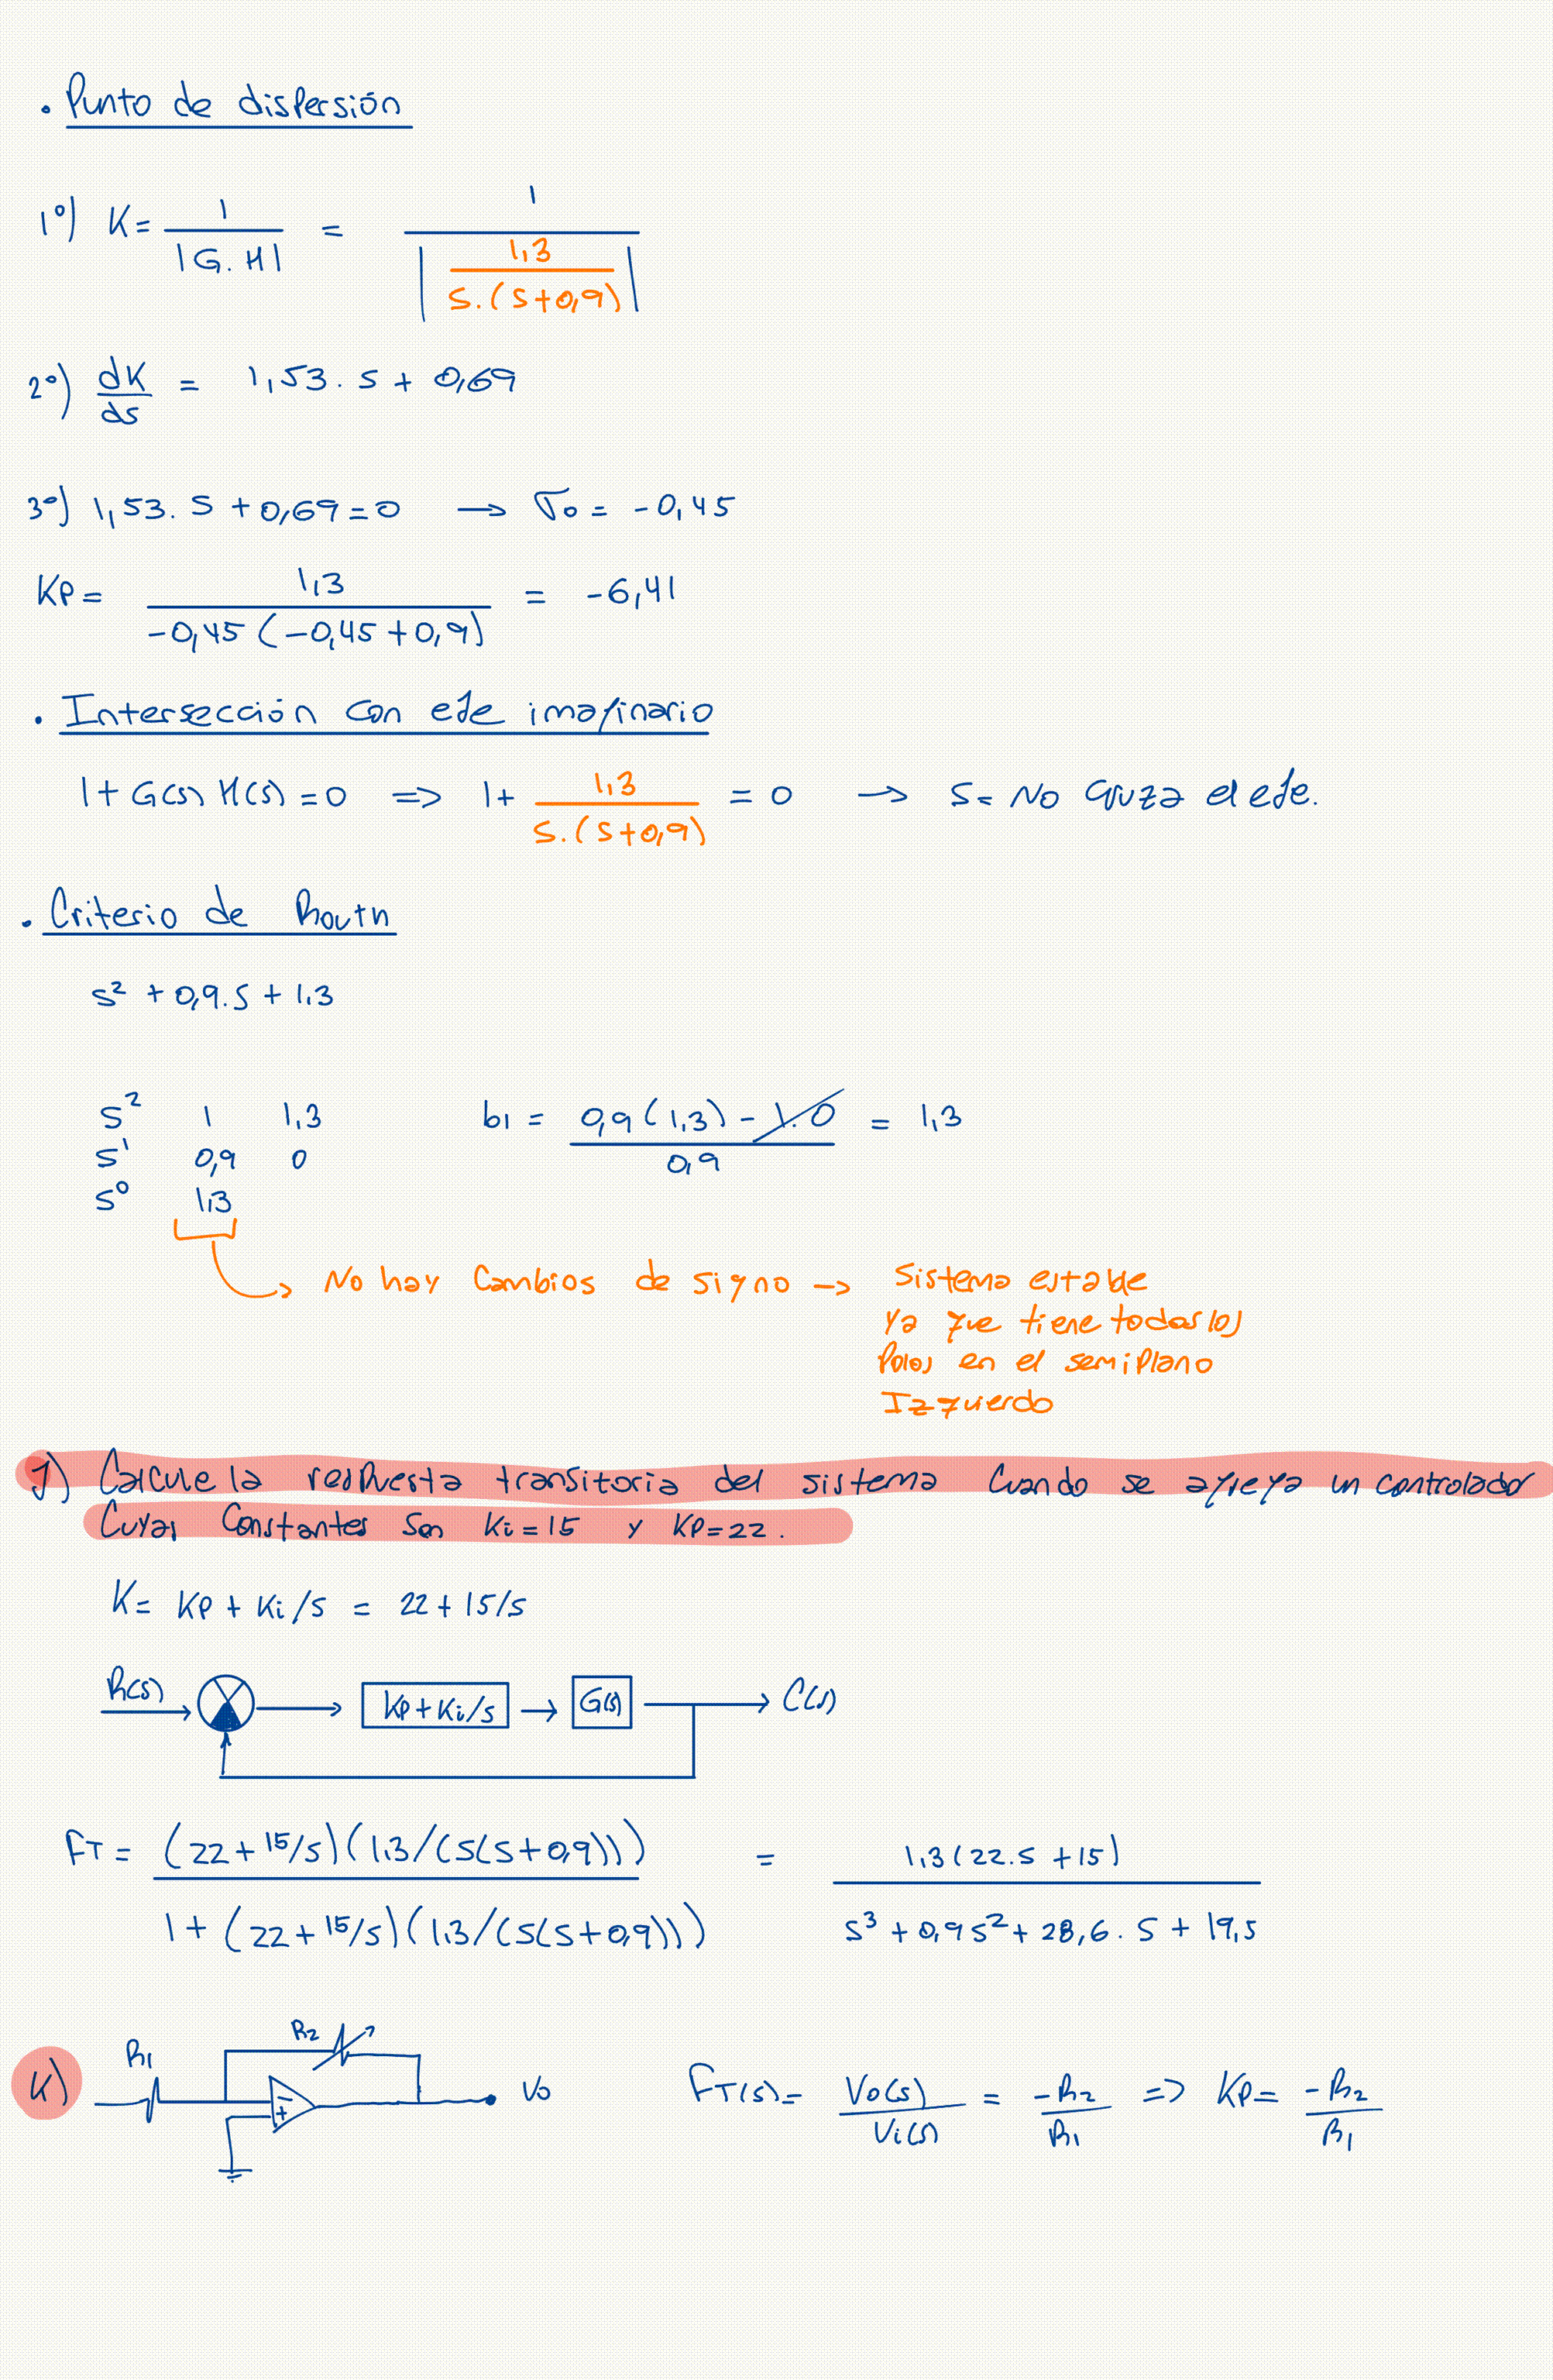 . Punto de dispersión
1º) K = 1 / |G.H| = 1 / | 1,3 / S.(S+0,9) |
2º) dK/ds = 1,53.S + 0,69
3º) 1,53.S + 0,69 = 0 → σo = -0,45
KP = 1,3 / -0,45(-0,45+0,9) = -6,41
. Intersección con eje imaginario
1+G(s)H(s) = 0 => 1 + 1,3 / S.(S+0,9) = 0 → S = No cruza el eje.
. Criterio de Routh
S² + 0,9.S + 1,3
S² 1 1,3 b1 = 0,9(1,3) - 1.0 / 0,9 = 1,3
S¹ 0,9 0
S⁰ 1,3
No hay cambios de signo → Sistema estable
ya que tiene todos los
Polos en el semiplano
Izquierdo
J) Calcule la respuesta transitoria del sistema cuando se agrega un controlador
cuyas constantes son Ki = 15 y KP = 22.
K = KP + Ki/S = 22 + 15/S
R(s) KP + Ki/s G(s) C(s)
FT = (22 + 15/S)(1,3/(S(S+0,9))) / 1 + (22 + 15/S)(1,3/(S(S+0,9))) = 1,3(22.S + 15) / S³ + 0,9S² + 28,6.S + 19,5
R2
K) R1 - + Vo FT(s) = Vo(s) / Vi(s) = -R2 / R1 => KP = -R2 / R1